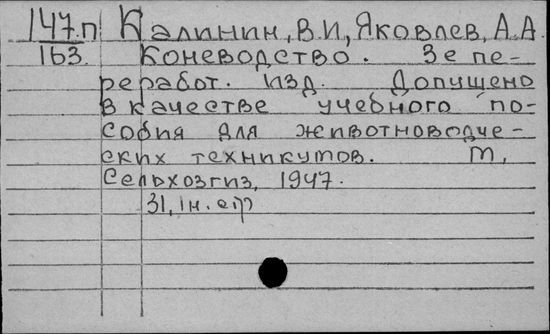 147.п Калинин, В.И, Яковлев, А.А
163. Коневодство. 3е пе-
реработ. изд. Допущено
в качестве учебного по-
собия для животноводче-
ских техникумов. М,
Сельхозгиз, 1947.
31, IH.